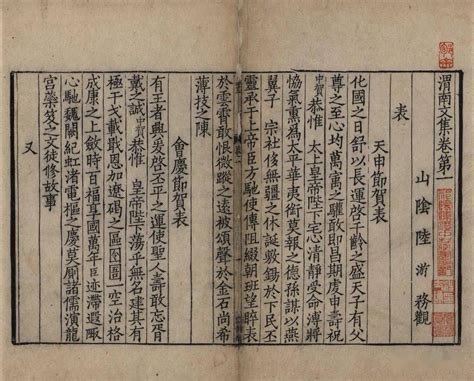 渭南文集卷第一
山陰陸游務觀
表
天申節賀表
化國之日舒以長運啓千齡之盛天子有父
尊之至心均萬寓之驩敢即昌期虔申壽祝
中賀恭惟太上皇帝陛下宅心清靜受命溥將
恊氣熏爲太平華夷銜莫報之德孫謀以燕
翼子宗社侈無疆之休誕敷錫于下民丕
靈承于上帝臣方馳使傳阻綴朝班望睟表
於雲霄敢恨微蹤之遠被頌聲於金石尚希
薄技之陳
會慶節賀表
有王者興爰啓丕平之運使聖人壽敢忘歸
戴之誠中賀恭惟皇帝陛下蕩乎無名建其有
極干戈載戢恩加遼碣之區囹圄一空治格
成康之上斂時百福享國萬年臣迹滯遐陬
心馳魏闕紀虹渚電樞之慶莫厠諸儒演龍
宮蘂笈之文徒修故事
又